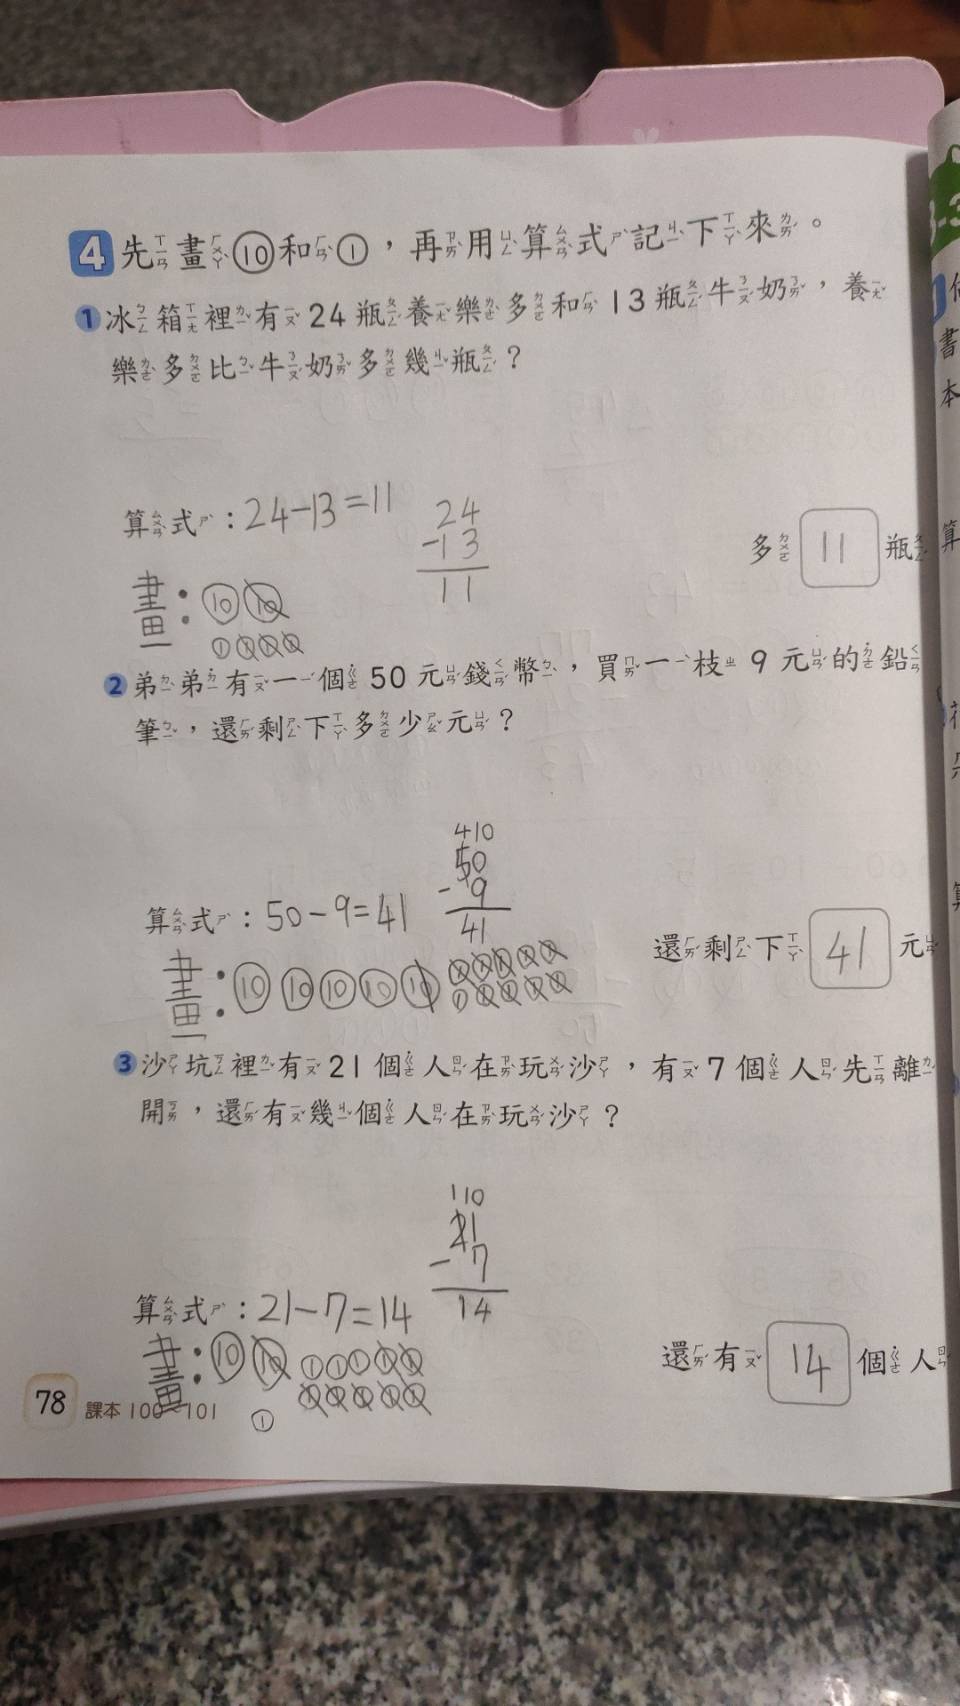 4 先畫⑩和①，再用算式記下來。
1 冰箱裡有24瓶養樂多和13瓶牛奶，養
樂多比牛奶多幾瓶？
算式：24-13=11
24
-13
11
多 11 瓶
畫：⑩⑩
①①①①
2 弟弟有一個50元錢幣，買一枝9元的鉛
筆，還剩下多少元？
410
50
-9
41
算式：50-9=41
還剩下 41 元
畫：⑩⑩⑩⑩⑩ ①①①①①
①①①①①
3 沙坑裡有21個人在玩沙，有7個人先離
開，還有幾個人在玩沙？
110
21
-7
14
算式：21-7=14
還有 14 個人
畫：⑩⑩ ①①①①①
①①①①①
①
78 課本100~101
書
本
算